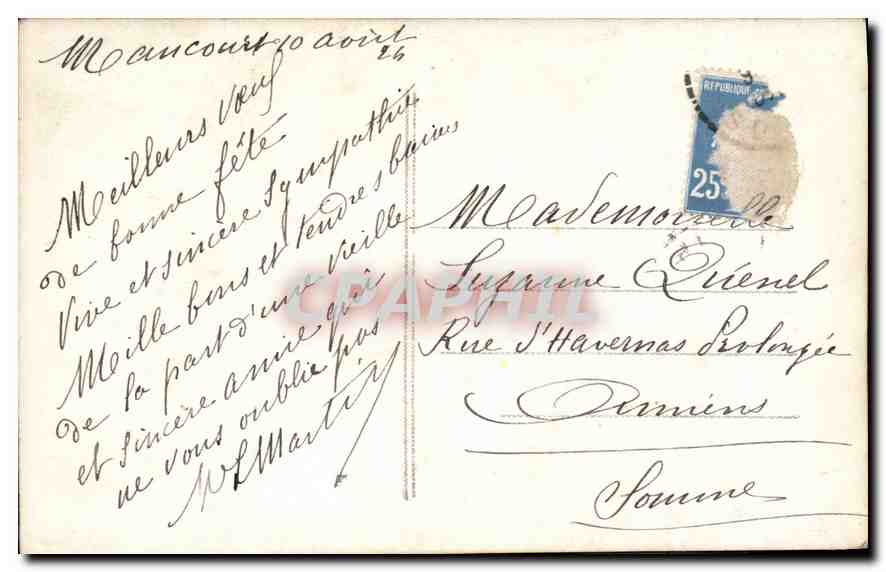 Mancourt 10 août
26
Meilleurs Vœux
de bonne fête
Vive et sincère Sympathie
Mille bons et tendres baisers
de la part d'une vieille
et sincère amie qui
ne vous oublie pas
Martin
REPUBLIQUE
25
Mademoiselle
Suzanne Quenel
Rue d'Havernas Prolongée
Amiens
Somme
CPAPHIL